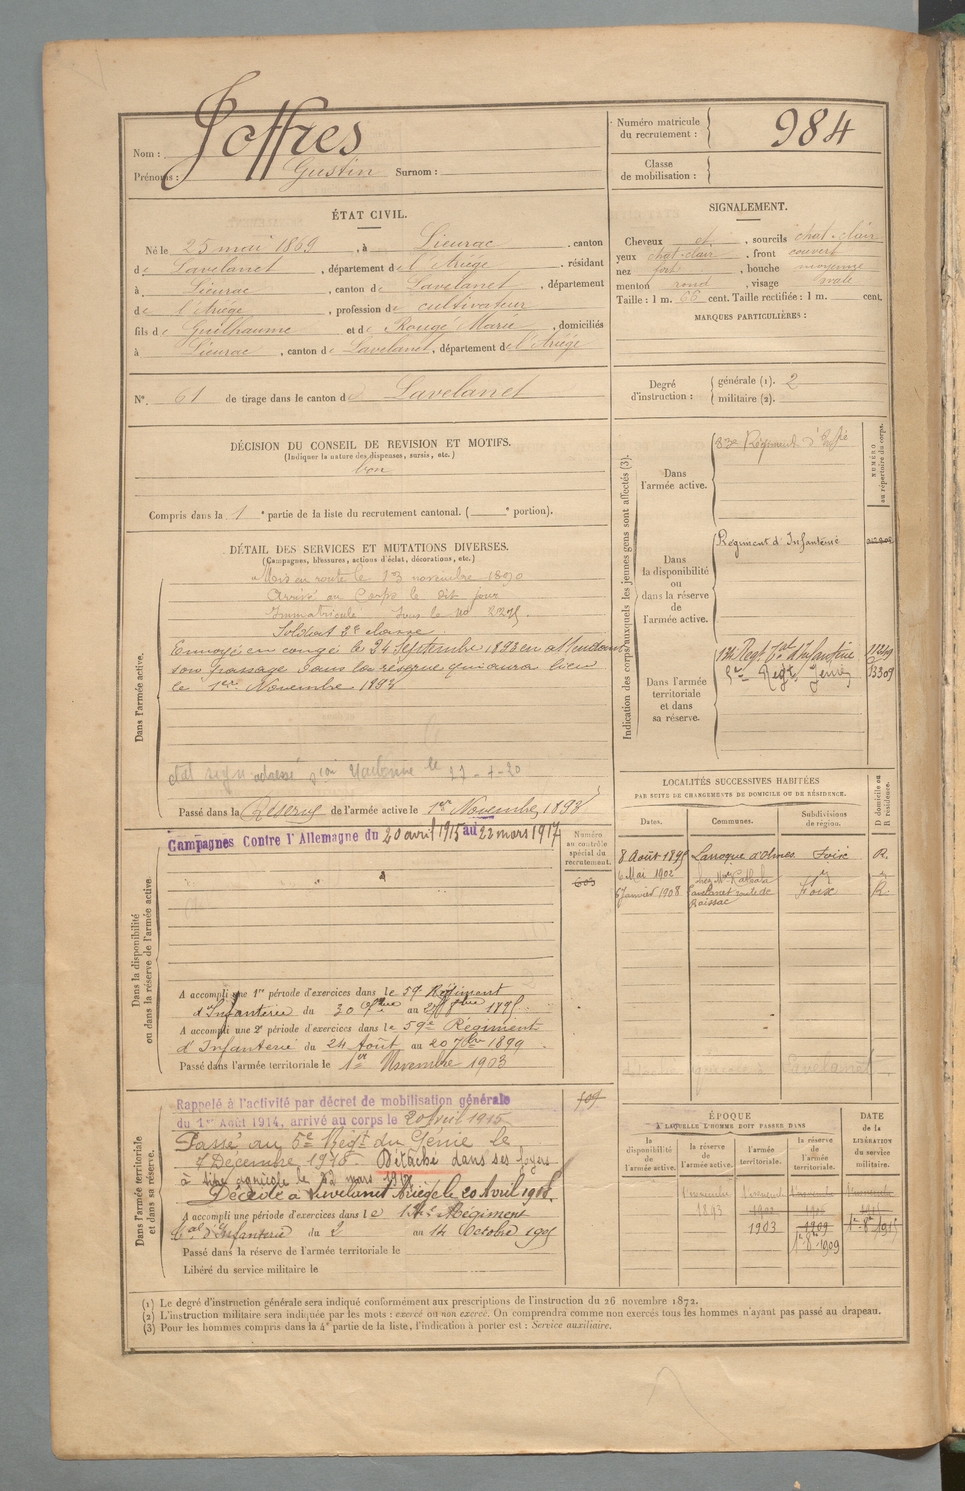 Nom : Joffres
Prénoms : Gustin Surnom :
Numéro matricule du recrutement : 984
Classe de mobilisation :
ÉTAT CIVIL.
Né le 25 mai 1869, à Lieurac, canton
de Lavelanet, département de l'Ariège, résidant
à Lieurac, canton de Lavelanet, département
de l'Ariège, profession de cultivateur
fils de Guilhaume et de Rougé Marie, domiciliés
à Lieurac, canton de Lavelanet, département de l'Ariège
SIGNALEMENT.
Cheveux et, sourcils chat-clair
yeux chat-clair, front couvert
nez fort, bouche moyenne
menton rond, visage ovale
Taille : 1 m. 66 cent. Taille rectifiée : 1 m. cent.
MARQUES PARTICULIÈRES :
N°. 61 de tirage dans le canton de Lavelanet
Degré d'instruction : générale (1). 2
militaire (2).
DÉCISION DU CONSEIL DE REVISION ET MOTIFS.
(Indiquer la nature des dispenses, sursis, etc.)
bon
Compris dans la 1e partie de la liste du recrutement cantonal. ( e portion).
DÉTAIL DES SERVICES ET MUTATIONS DIVERSES.
(Campagnes, blessures, actions d'éclat, décorations, etc.)
Dans l'armée active.
Mis en route le 13 novembre 1890
Arrivé au Corps le dit jour
Immatriculé sous le no
Soldat 2e classe
Envoyé en congé le 24 Septembre 1893 en attendant
son passage dans la réserve qui aura lieu
le 1er Novembre 1893
adressé Narbonne le
Passé dans la Réserve de l'armée active le 1er Novembre 1893
Numéro au contrôle spécial du recrutement.
Campagnes Contre l'Allemagne du 20 avril 1915 au 22 mars 1917
Dans la disponibilité ou dans la réserve de l'armée active
A accompli une 1re période d'exercices dans le 59 Régiment
d'Infanterie du 30 au
A accompli une 2e période d'exercices dans le 59e Régiment
d'Infanterie du 24 Août au 20 7bre 1899
Passé dans l'armée territoriale le 1er Novembre 1903
Dans l'armée territoriale et dans sa réserve.
Rappelé à l'activité par décret de mobilisation générale
du 1er Août 1914, arrivé au corps le 20 Avril 1915
Passé au 5e Régt du Génie le
7 Décembre Détaché dans ses foyers
à titre agricole le 22 mars 1917
Décédé à Lavelanet Ariège le 20 Avril
A accompli une période d'exercices dans le Régiment
d'Infanterie du 2 au 14 Octobre
Passé dans la réserve de l'armée territoriale le
Libéré du service militaire le
Indication des corps auxquels les jeunes gens sont affectés (3).
NUMÉRO au répertoire du corps.
Dans l'armée active. 83e Régiment d'Infie
Dans la disponibilité ou dans la réserve de l'armée active. Régiment d'Infanterie
Dans l'armée territoriale et dans sa réserve. Régt d'Infanterie
Régt Génie
LOCALITÉS SUCCESSIVES HABITÉES
PAR SUITE DE CHANGEMENTS DE DOMICILE OU DE RÉSIDENCE.
Dates. Communes. Subdivisions de région. D domicile ou R résidence.
8 Août Laroque d'Olmes Foix R.
6 Mai 1902
6 Janvier 1908 Lavelanet route de Raissac Foix R
ÉPOQUE
À LAQUELLE L'HOMME DOIT PASSER DANS
la disponibilité de l'armée active.
la réserve de l'armée active.
l'armée territoriale.
la réserve de l'armée territoriale.
DATE de la LIBÉRATION du service militaire.
1893 1903 1909
(1) Le degré d'instruction générale sera indiqué conformément aux prescriptions de l'instruction du 26 novembre 1872.
(2) L'instruction militaire sera indiquée par les mots : exercé ou non exercé. On comprendra comme non exercés tous les hommes n'ayant pas passé au drapeau.
(3) Pour les hommes compris dans la 4e partie de la liste, l'indication à porter est : Service auxiliaire.